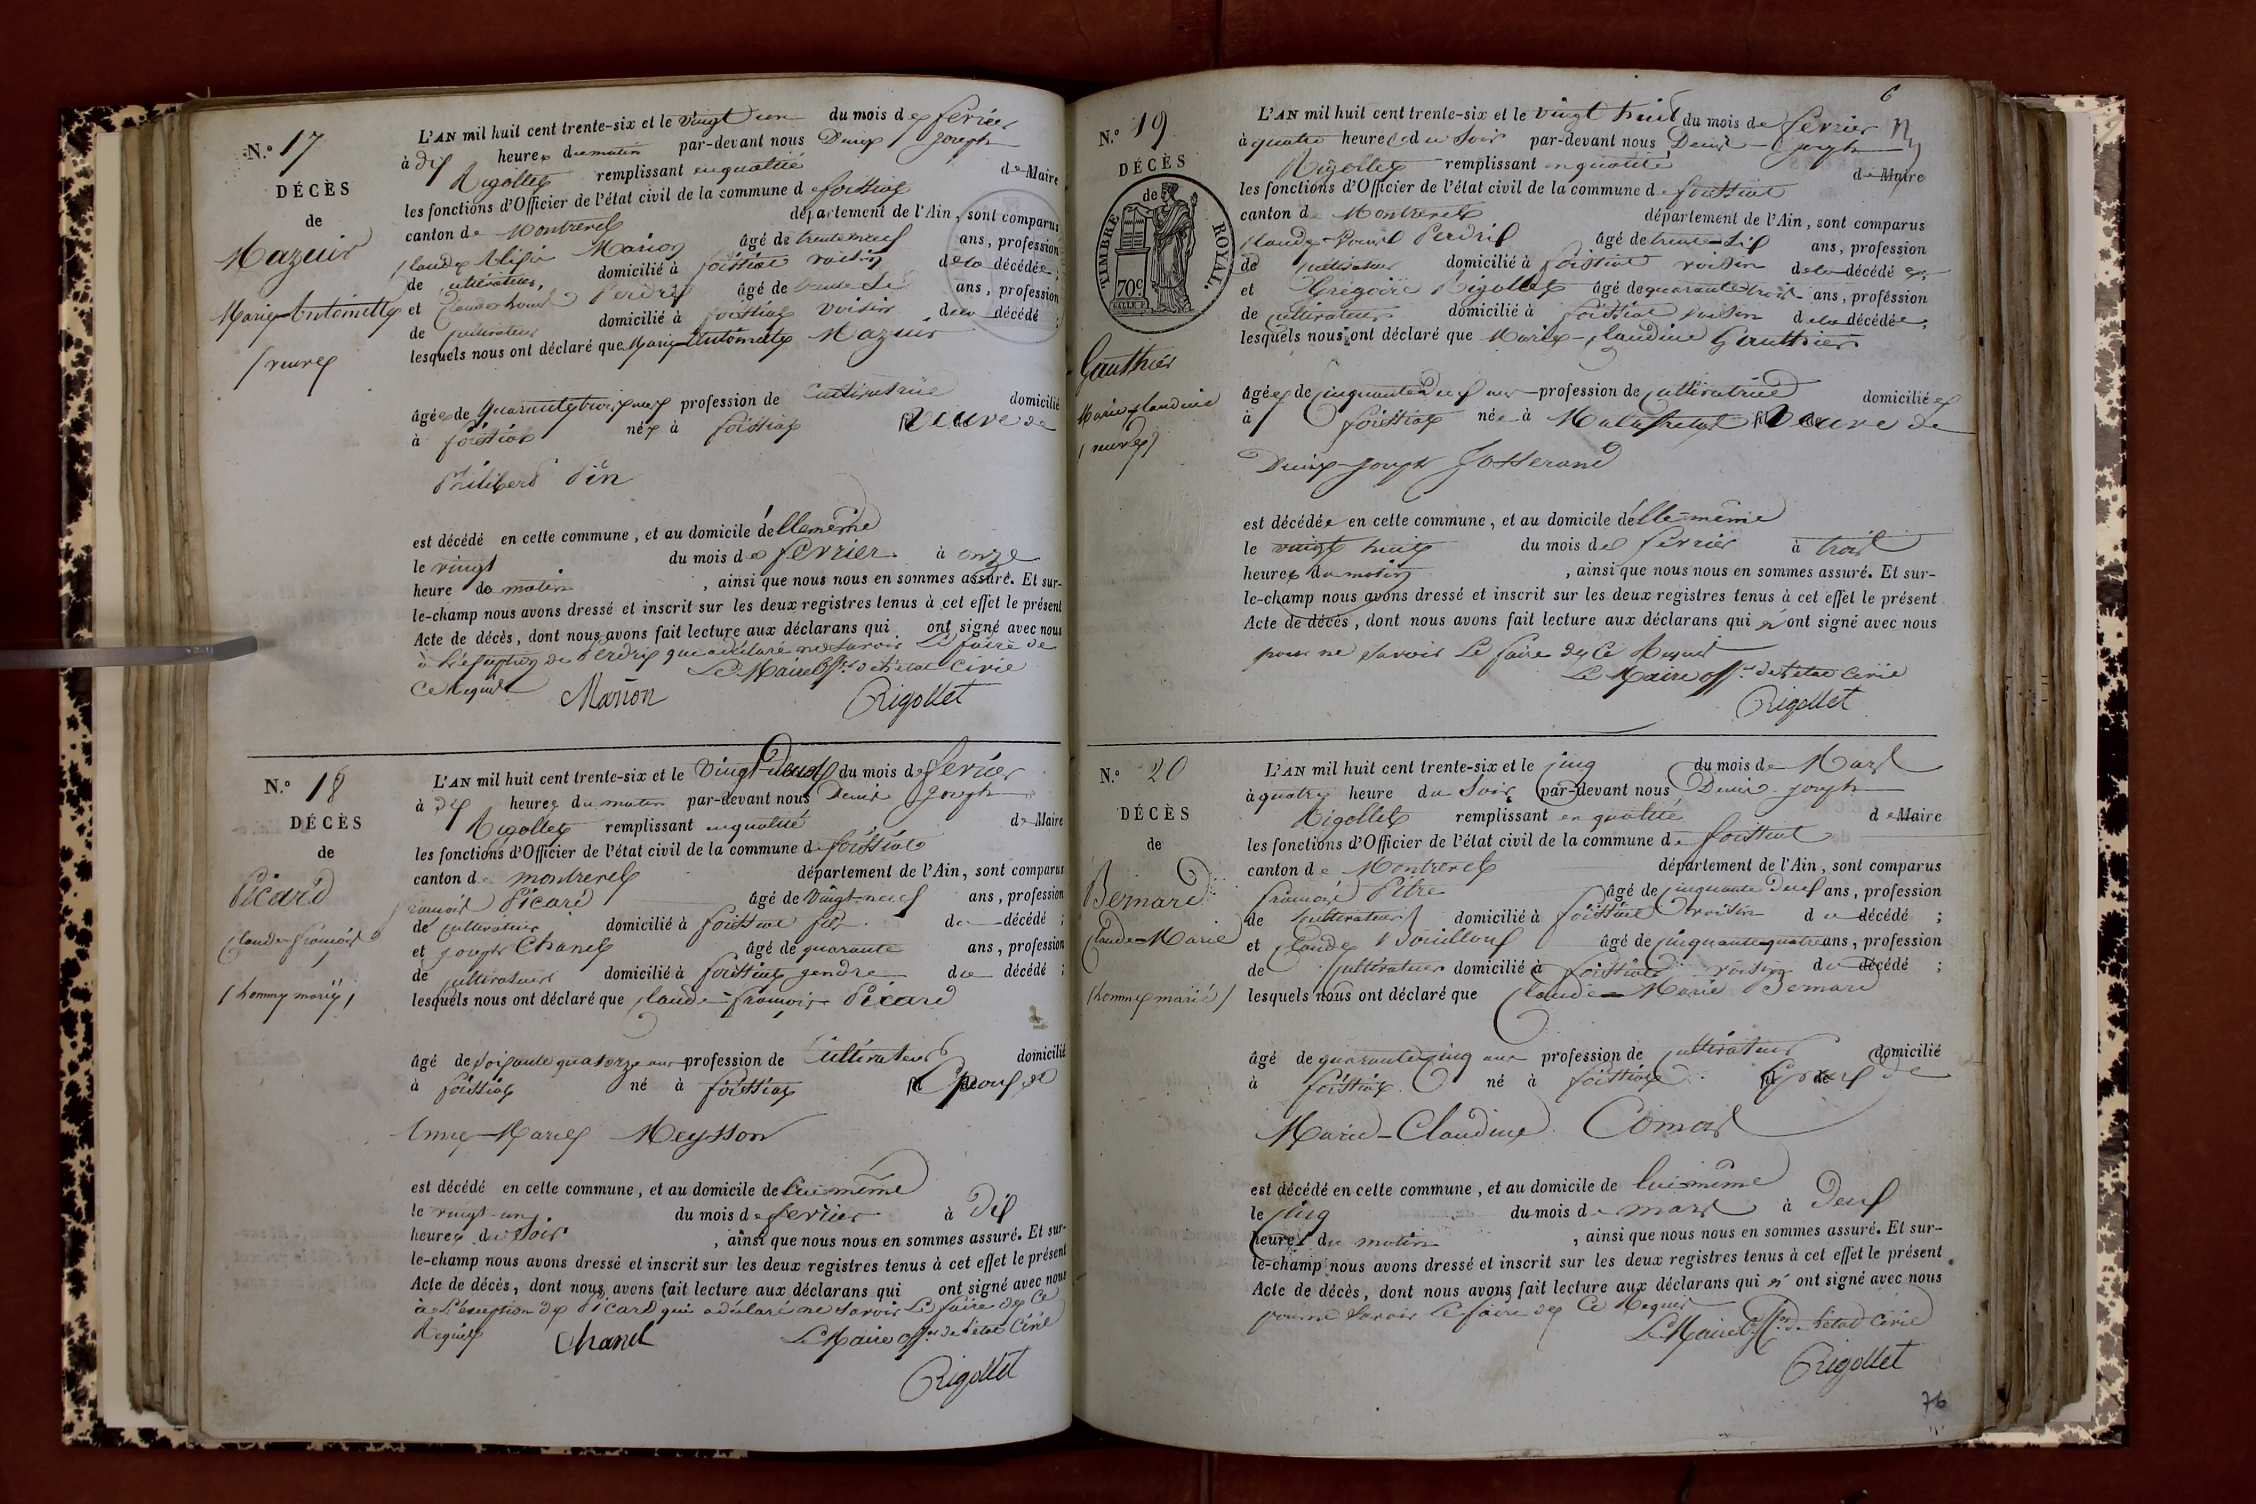 N.º 17
DÉCÈS
de
Mazuir
Marie Antoinette
(veuve)
L'AN mil huit cent trente-six et le vingt un du mois de fevrier
à dix heures du matin par-devant nous Denis Joseph
Rigollet remplissant en qualité de Maire
les fonctions d'Officier de l'état civil de la commune de foissiat
canton de Montrevel département de l'Ain, sont comparus
Claude Marion âgé de trente neuf ans, profession
de cultivateur, domicilié à foissiat voisin de la décédée;
et Claude Louis Perdrix âgé de trente six ans, profession
de cultivateur domicilié à foissiat voisin de la décédé;
lesquels nous ont déclaré que Marie Antoinette Mazuir
âgée de quarante trois ans profession de cultivatrice domicilié
à foissiat née à foissiat veuve de
Philibert Pin
est décédé en cette commune, et au domicile d'elle même
le vingt du mois de fevrier à onze
heure du matin, ainsi que nous nous en sommes assuré. Et sur-
le-champ nous avons dressé et inscrit sur les deux registres tenus à cet effet le présent
Acte de décès, dont nous avons fait lecture aux déclarans qui ont signé avec nous
à l'exception de Perdrix qui a déclaré ne savoir le faire de
ce requis Le Maire off.er de l'état civil
Marion Rigollet
N.º 18
DÉCÈS
de
Picard
Claude-françois
(homme marié)
L'AN mil huit cent trente-six et le vingt-deux du mois de fevrier
à dix heures du matin par-devant nous Denis Joseph
Rigollet remplissant en qualité de Maire
les fonctions d'Officier de l'état civil de la commune de foissiat
canton de montrevel département de l'Ain, sont comparus
françois Picard âgé de vingt-neuf ans, profession
de cultivateur domicilié à foissiat fils du décédé;
et joseph Chanel âgé de quarante ans, profession
de cultivateur domicilié à foissiat gendre du décédé;
lesquels nous ont déclaré que Claude-françois Picard
âgé de soixante quatorze ans profession de cultivateur domicilié
à foissiat né à foissiat Epoux de
Anne-Marie Meysson
est décédé en cette commune, et au domicile de lui même
le vingt-un du mois de fevrier à dix
heures du soir, ainsi que nous nous en sommes assuré. Et sur-
le-champ nous avons dressé et inscrit sur les deux registres tenus à cet effet le présent
Acte de décès, dont nous avons fait lecture aux déclarans qui ont signé avec nous
à l'exception de Picard qui a déclaré ne savoir le faire de ce
Requis Chanel Le Maire off.er de l'état civil
Rigollet
6
N.º 19
DÉCÈS
de
TIMBRE ROYAL.
70c
Gauthier
Marie Claudine
(veuve)
L'AN mil huit cent trente-six et le vingt huit du mois de fevrier
à quatre heures du soir par-devant nous Denis-joseph
Rigollet remplissant en qualité de Maire
les fonctions d'Officier de l'état civil de la commune de foissiat
canton de Montrevel département de l'Ain, sont comparus
Claude-Louis Perdrix âgé de trente-six ans, profession
de cultivateur domicilié à foissiat voisin de la décédée;
et Grégoire Rigollet âgé de quarante trois ans, profession
de cultivateur domicilié à foissiat voisin de la décédée;
lesquels nous ont déclaré que Marie-Claudine Gauthier
âgée de cinquante neuf ans profession de cultivatrice domiciliée
à foissiat née à Malafretaz Veuve de
Denis-Joseph Josserand
est décédée en cette commune, et au domicile d'elle-même
le vingt huit du mois de fevrier à trois
heures du matin, ainsi que nous nous en sommes assuré. Et sur-
le-champ nous avons dressé et inscrit sur les deux registres tenus à cet effet le présent
Acte de décès, dont nous avons fait lecture aux déclarans qui n'ont signé avec nous
pour ne savoir le faire de ce Requis
Le Maire off.er de l'état civil
Rigollet
N.º 20
DÉCÈS
de
Bernard
Claude-Marie
(homme marié)
L'AN mil huit cent trente-six et le cinq du mois de Mars
à quatre heure du soir par-devant nous Denis-joseph
Rigollet remplissant en qualité de Maire
les fonctions d'Officier de l'état civil de la commune de foissiat
canton de Montrevel département de l'Ain, sont comparus
françois Pitre âgé de cinquante deux ans, profession
de cultivateur domicilié à foissiat voisin du décédé;
et Claude Bouilloux âgé de cinquante quatre ans, profession
de cultivateur domicilié à foissiat voisin du décédé;
lesquels nous ont déclaré que Claude-Marie Bernard
âgé de quarante cinq ans profession de cultivateur domicilié
à foissiat né à foissiat Epoux de
Marie-Claudine Comas
est décédé en cette commune, et au domicile de lui même
le cinq du mois de mars à deux
heures du matin, ainsi que nous nous en sommes assuré. Et sur-
le-champ nous avons dressé et inscrit sur les deux registres tenus à cet effet le présent
Acte de décès, dont nous avons fait lecture aux déclarans qui n'ont signé avec nous
pour ne savoir le faire de ce Requis
Le Maire off.er de l'état civil
Rigollet
76